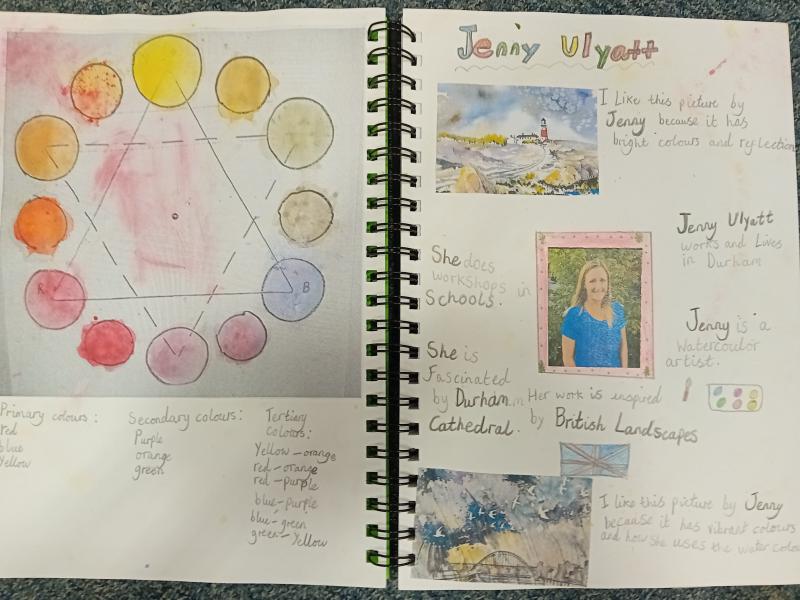 R
B
Primary colours:
red
blue
Yellow
Secondary colours:
Purple
orange
green
Tertiary
colours:
Yellow-orange
red-orange
red-purple
blue-purple
blue-green
green-Yellow
Jenny Ulyatt
I Like this picture by
Jenny because it has
bright colours and reflection
Jenny Ulyatt
works and Lives
in Durham
She does
workshops in
Schools.
Jenny is a
watercoulor
artist.
She is
Fascinated
by Durham
Cathedral.
Her work is inspired
by British Landscapes
I like this picture by Jenny
because it has vibrant colours
and how she uses the water colou